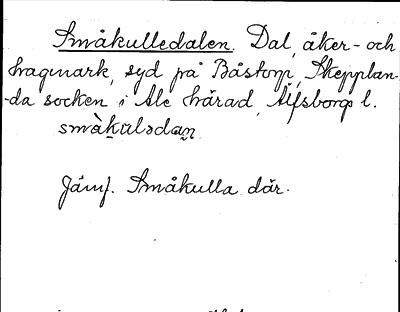 Småkulledalen. Dal, åker- och
hagmark, syd på Båstorp, Skepplan-
-da socken i Ale härad, Älfsborgs l.
småkulədan
Jämf. Småkulla där.